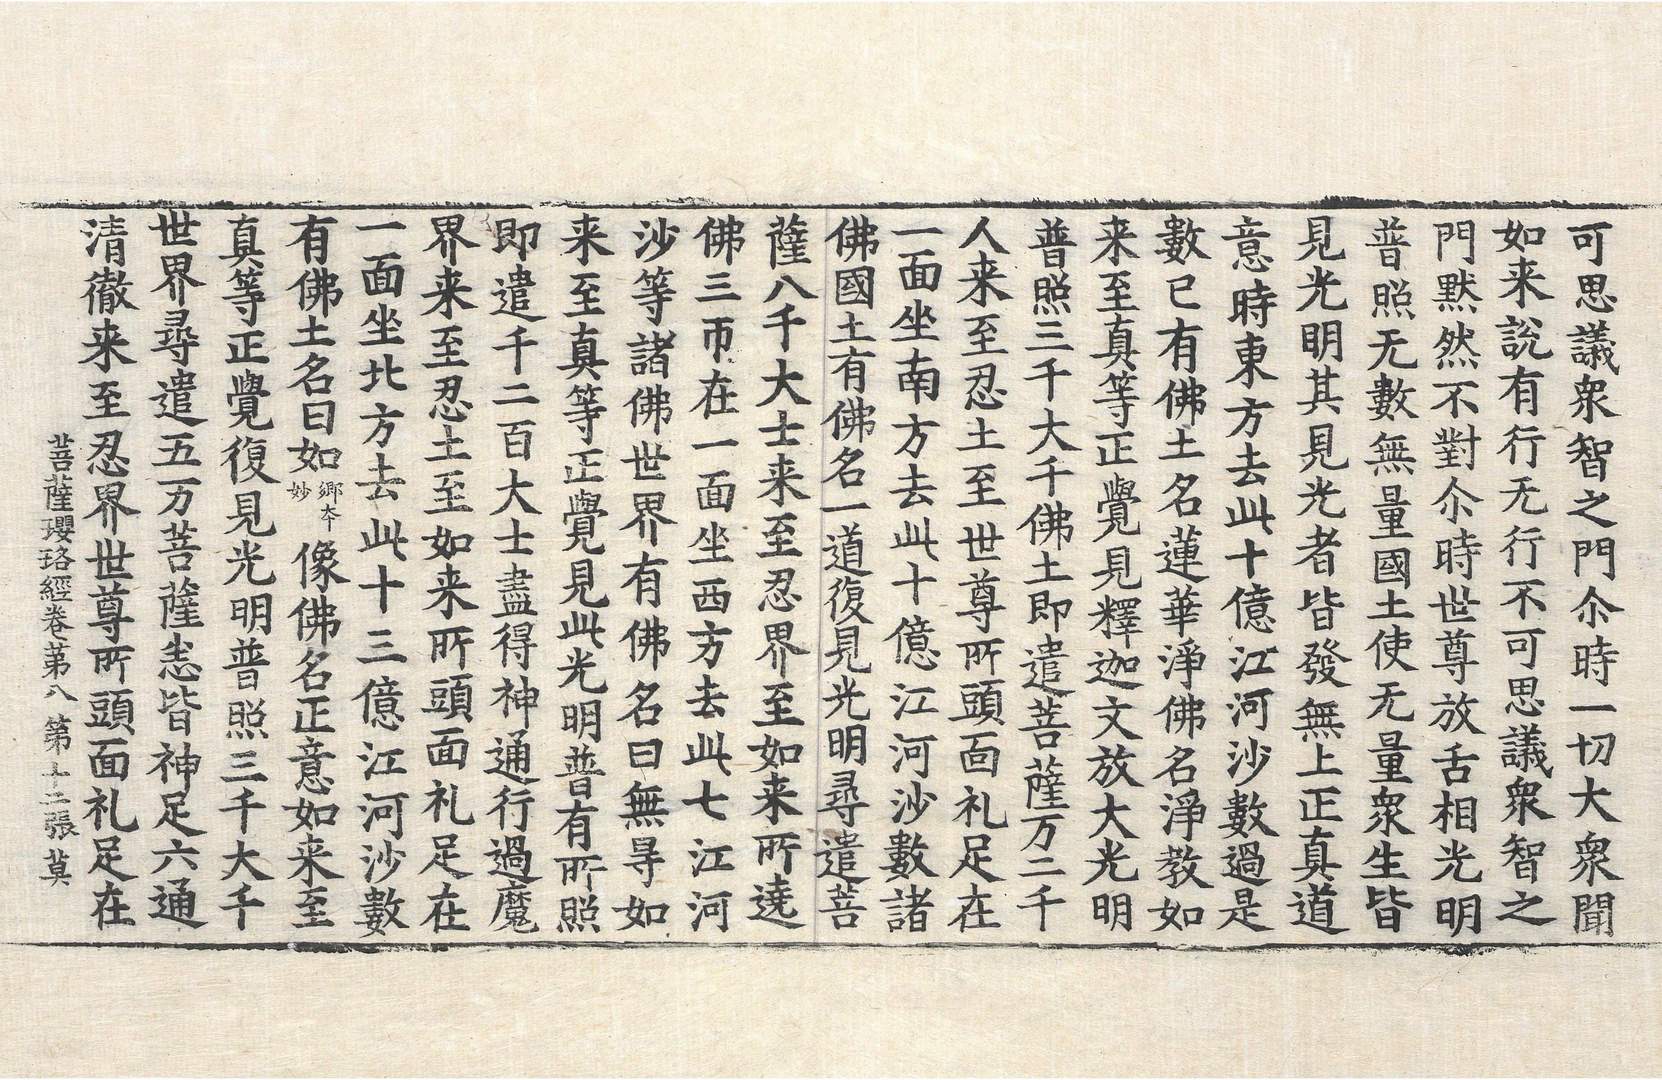 可思議衆智之門尒時一切大衆聞
如来說有行无行不可思議衆智之
門黙然不對尒時世尊放舌相光明
普照无數無量國土使无量衆生皆
見光明其見光者皆發無上正真道
意時東方去此十億江河沙數過是
數已有佛土名蓮華淨佛名淨教如
来至真等正覺見釋迦文放大光明
普照三千大千佛土即遣菩薩万二千
人来至忍土至世尊所頭面礼足在
一面坐南方去此十億江河沙數諸
佛國土有佛名一道復見光明尋遣菩
薩八千大士来至忍界至如来所遶
佛三帀在一面坐西方去此七江河
沙等諸佛世界有佛名曰無㝵如
来至真等正覺見此光明普有所照
即遣千二百大士盡得神通行過魔
界来至忍土至如来所頭面礼足在
一面坐北方去此十三億江河沙數
有佛土名曰如鄉本妙像佛名正意如来至
真等正覺復見光明普照三千大千
世界尋遣五万菩薩恙皆神足六通
清徹来至忍界世尊所頭面礼足在
菩薩瓔珞經卷第八 第十二張 莫